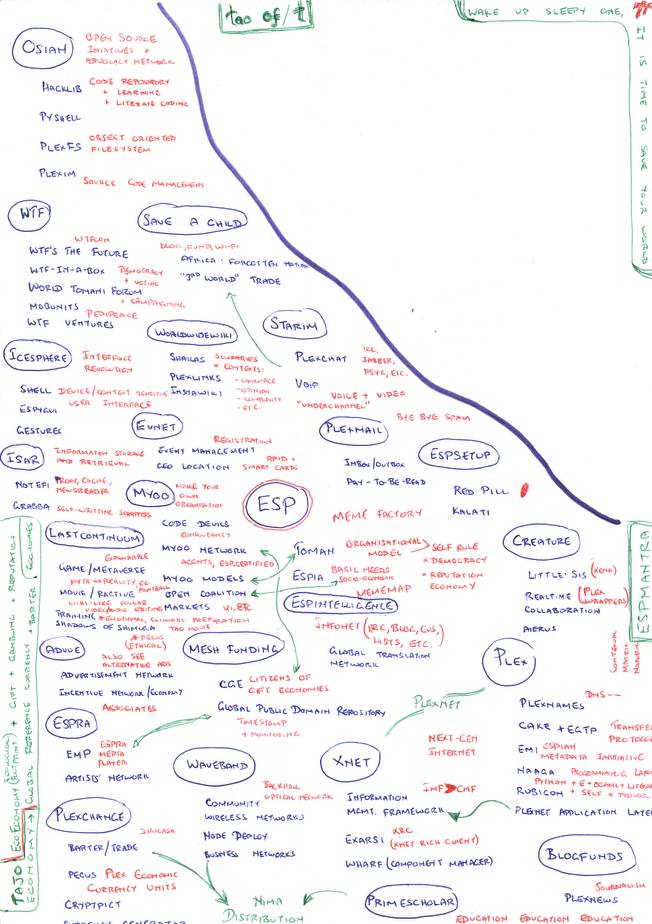 tao of/t
WAKE UP SLEEPY ONE,
IT IS TIME TO SAVE YOUR WORLD
OSIAN
OPEN SOURCE
INIATIVES +
ADVOCACY NETWORK
HACKLIB
CODE REPOSITORY
+ LEARNING
+ LITERATE CODING
PYSHELL
PLEXFS
OBJECT ORIENTED
FILESYSTEM
PLEXIM
SOURCE CODE MANAGEMENT
WTF
WTFCON
WTF'S THE FUTURE
WTF-IN-A-BOX
DEMOCRACY
+ VOTING
WORLD TOMANI FORUM
+ CAMPAIGNING
MOBUNITS
PEDIPEACE
WTF VENTURES
SAVE A CHILD
BLOG, FUND, WI-FI
AFRICA: FORGOTTEN NATION
"3RD WORLD" TRADE
WORLDWIDEWIKI
SHAILAS
SUMMARIES
+ CONTEXTS:
PLEXLINKS
- LANGUAGE
- OPINION
INSTAWIKI
- COMPLEXITY
- ETC.
STARIM
PLEXCHAT
IRC,
JABBER,
PSYC, ETC.
VOIP
VOICE + VIDEO
"UNDERCHANNEL"
BYE BYE SPAM
ICESPHERE
INTERFACE
REVOLUTION
SHELL
DEVICE/CONTEXT SENSITIVE
USER INTERFACE
ESPYGUI
GESTURES
EVNET
REGISTRATION
EVENT MANAGEMENT
GEO LOCATION
RFID +
SMART CARDS
PLEXMAIL
INBOX/OUTBOX
PAY-TO-BE-READ
ESPSETUP
RED PILL
KALATI
ISAR
INFORMATION STORAGE
AND RETRIEVAL
NOTEFI
PROXY, CACHE,
NEWSREADER
GRABBA
SELF-WRITING SCRIPTS
MYOO
MAKE YOUR
OWN
ORGANISATION
CODE DEVILS
CONSULTANCY
MYOO NETWORK
AGENTS, ESP.CERTIFIED
MYOO MODELS
OPEN COALITION
MARKETS
ESP
MEME FACTORY
TOMAN
ORGANISATIONAL
MODEL
SELF RULE
+ DEMOCRACY
- REPUTATION
ECONOMY
ESPIA
BASIC NEEDS
SOCIO-ECONOMIC
MEMEMAP
LASTCONTINUUM
EXPANDABLE
GAME/METAVERSE
MYTH + REALITY
MOVIE/RACTIVE
WIKI-LIKE COLLAB
VIDEO/AUDIO EDITING
TRAINING
SHADOWS OF SHIMURA
TAO MOVIE
ESPINTELLIGENCE
INFONET (IRC, BLOG, CVS,
LISTS, ETC.
GLOBAL TRANSLATION
NETWORK
CREATURE
LITTLE-SIS
(XENA)
REALTIME
COLLABORATION
(PLEX
WRAPPERS)
AERUS
ESPMANTRA
ADVUE
(ETHICAL)
ALSO SEE
ALTERNATIVE ADS
ADVERTISEMENT NETWORK
INCENTIVE NETWORK/ECONOMY
ASSOCIATES
MESH FUNDING
CGE
CITIZENS OF
GIFT ECONOMIES
GLOBAL PUBLIC DOMAIN REPOSITORY
TIMESTAMP
+ MONITORING
PLEX
PLEXNET
NEXT-GEN
INTERNET
PLEXNAMES
DNS--
CAKE + EGTP
TRANSFER
PROTOCOL
EMI
ESPIAN
METADATA INITIATIVE
NAAGA
PROGRAMMING LANG
RUBICON
+ SELF + PROLOG
PLEXNET APPLICATION LAYER
ESPRA
EMP
ESPRA
MEDIA
PLAYER
ARTISTS' NETWORK
WAVEBAND
BACKHAUL
OPTICAL NETWORK
COMMUNITY
WIRELESS NETWORKS
NODE DEPLOY
BUSINESS NETWORKS
XNET
INFORMATION
MGMT. FRAMEWORK
EXARSI
XRC
(XNET RICH CLIENT)
WHARF (COMPONENT MANAGER)
PLEXCHANGE
BARTER/TRADE
PECUS
PLEX ECONOMIC
CURRENCY UNITS
CRYPTPICT
CURRENCY GENERATOR
NIMA
DISTRIBUTION
PRIMESCHOLAR
EDUCATION EDUCATION EDUCATION
BLOGFUNDS
JOURNALISM
PLEXNEWS
TAJO